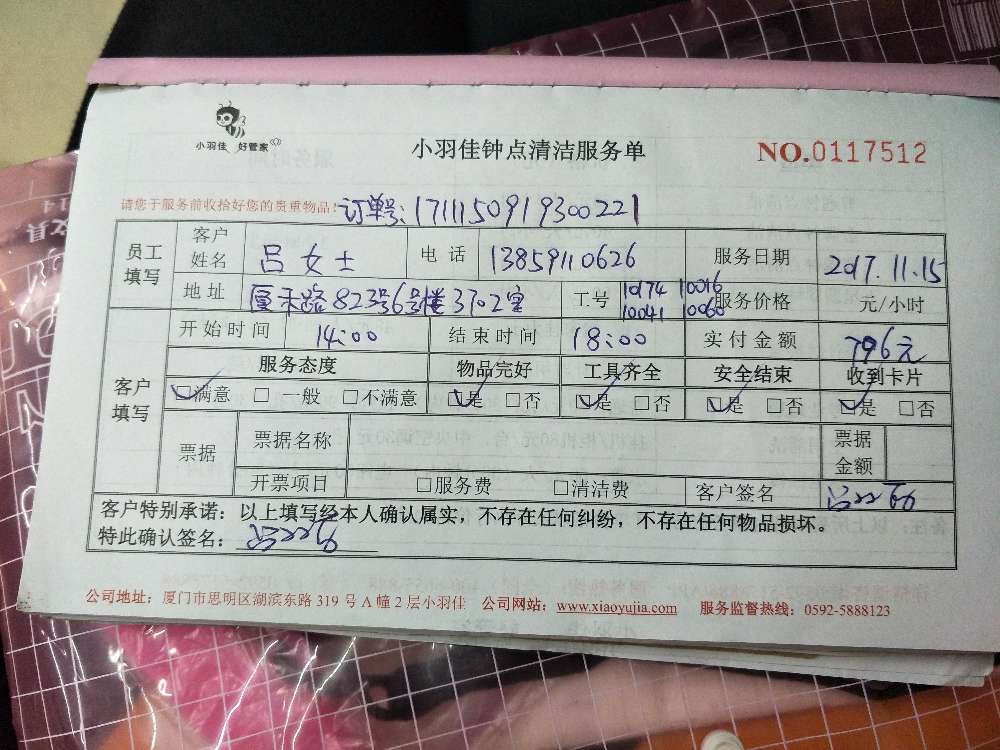 小羽佳 好管家
小羽佳钟点清洁服务单
NO.0117512
请您于服务前收拾好您的贵重物品: 订单号:171115091930022​1
员工填写 客户姓名 吕女士 电话 13859110626 服务日期 2017.11.15
地址 厦禾路823号6号楼3702室 工号 10174 10016 10041 10060 服务价格 元/小时
客户填写 开始时间 14:00 结束时间 18:00 实付金额 796元
服务态度 物品完好 工具齐全 安全结束 收到卡片
☑满意 □一般 □不满意 ☑是 □否 ☑是 □否 ☑是 □否 ☑是 □否
票据 票据名称 票据金额
开票项目 □服务费 □清洁费 客户签名
客户特别承诺：以上填写经本人确认属实，不存在任何纠纷，不存在任何物品损坏。
特此确认签名：
公司地址：厦门市思明区湖滨东路 319 号 A 幢 2 层小羽佳 公司网站：www.xiaoyujia.com 服务监督热线：0592-5888123